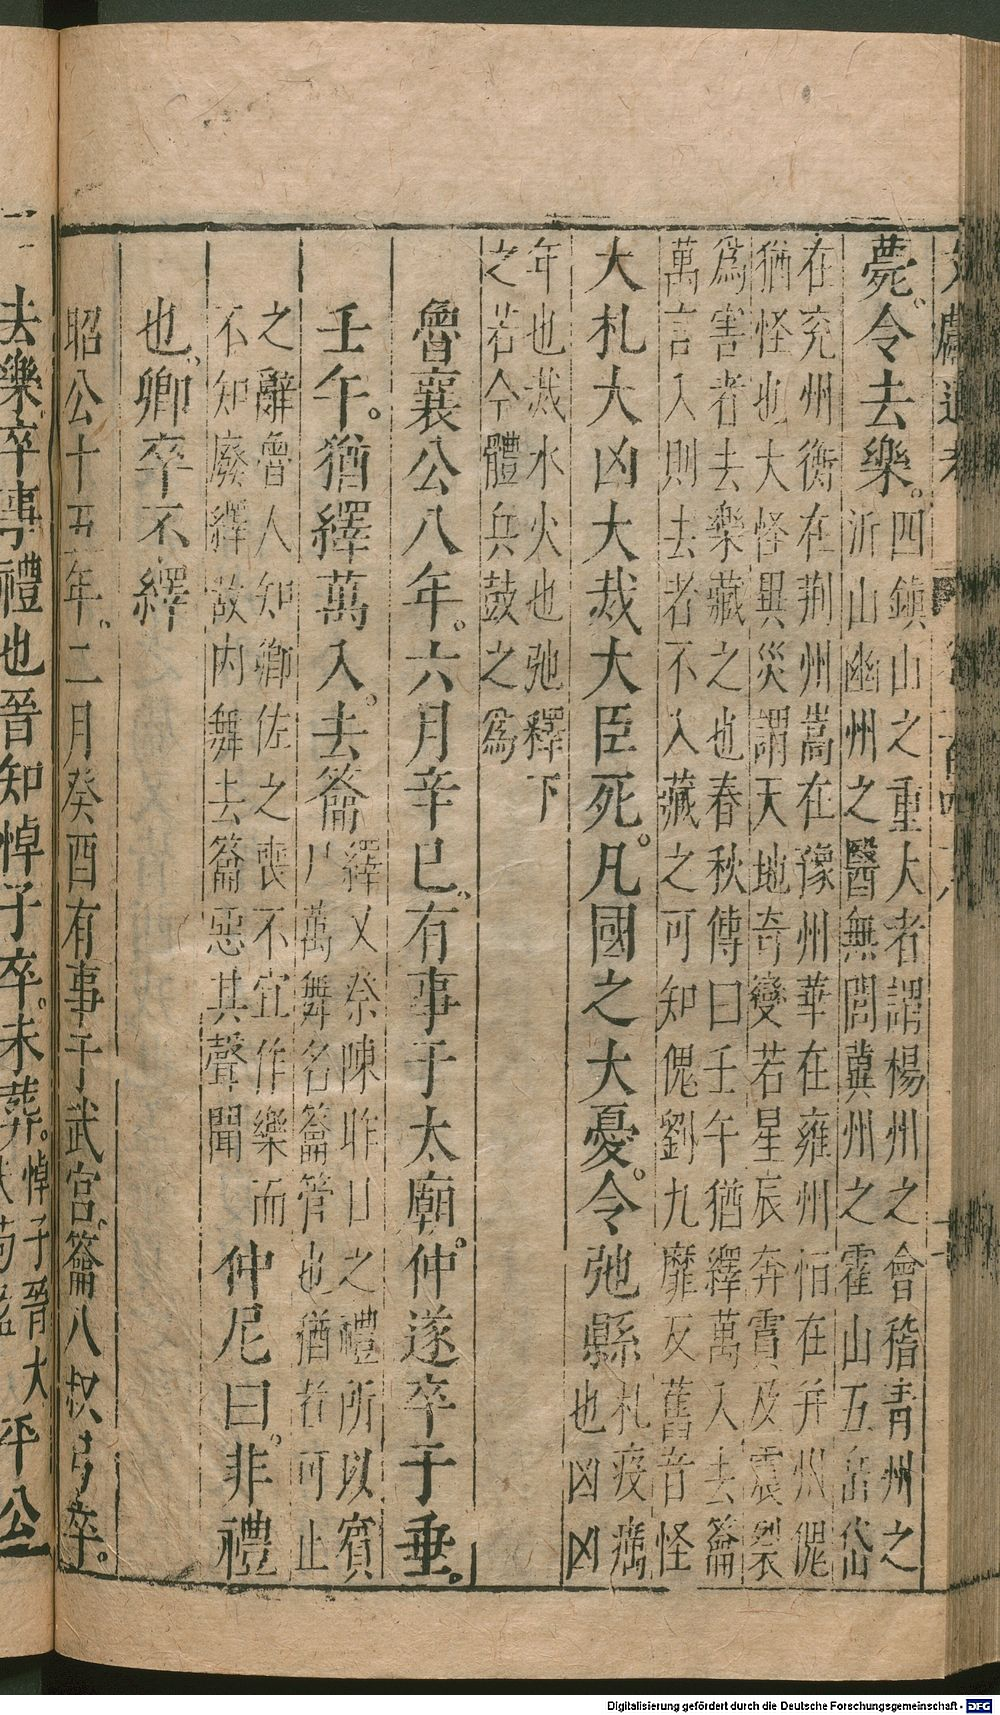 薨。令去樂。四鎮山之重大者謂楊州之會稽青州之
沂山幽州之醫無閭冀州之霍山五岳岱
在兖州衡在荆州嵩在豫州華在雍州恒在并州傀
猶怪也大怪異災謂天地奇變若星辰奔霣及震裂
爲害者去樂藏之也春秋傳曰壬午猶繹萬入去籥
萬言入則去者不入藏之可知傀劉九靡反舊音怪
大札大凶大烖大臣死。凡國之大憂。令弛縣札疫癘
也凶凶
年也烖水火也弛釋下
之若今體兵鼓之爲
魯襄公八年。六月辛巳。有事于太廟。仲遂卒于垂。
壬午。猶繹萬入。去籥繹又祭陳昨日之禮所以賓
尸萬舞名籥管也猶者可止
之辭魯人知卿佐之喪不宜作樂而
不知廢繹故内舞去籥惡其聲聞
仲尼曰。非禮
也。卿卒不繹
昭公十五年。二月癸酉有事于武宮。籥入叔弓卒。
去樂。卒事禮也晉知悼子卒。未葬。悼子晉大
平公
Digitalisierung gefördert durch die Deutsche Forschungsgemeinschaft - DFG